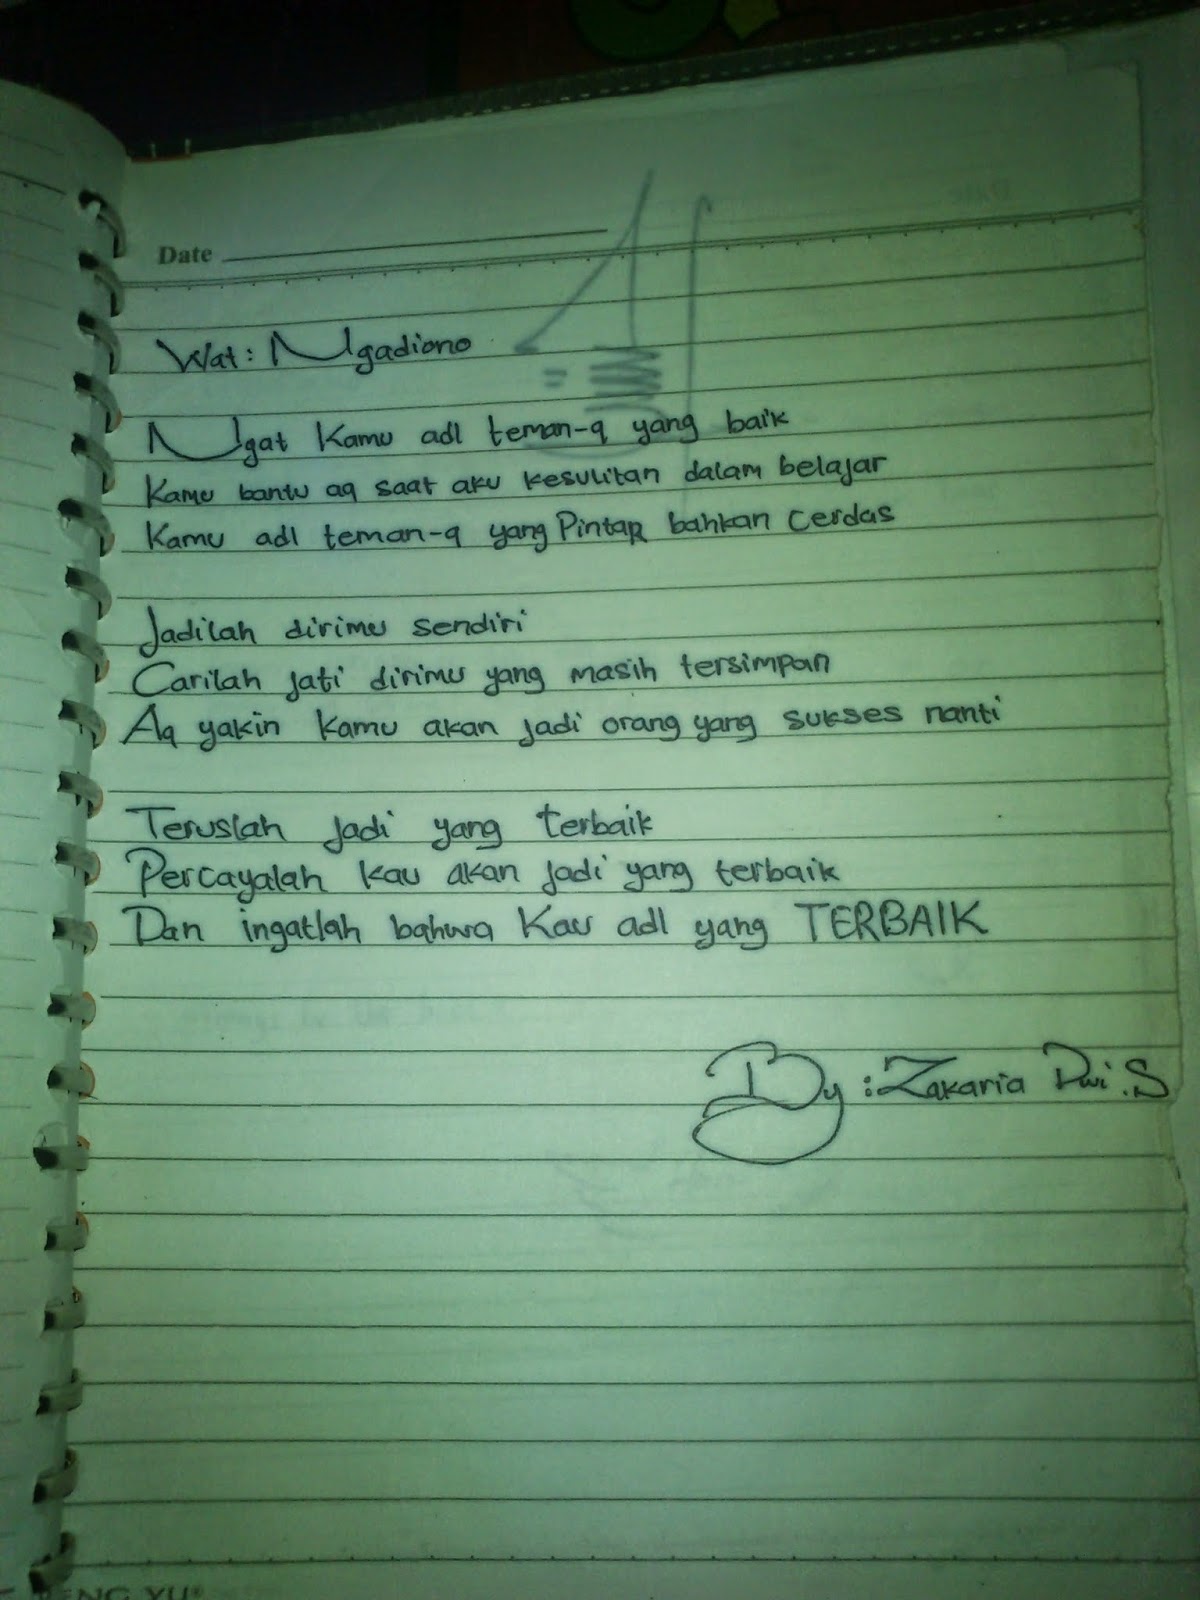 Date
Wat: Ngadiono
Ngat kamu adl teman-q yang baik
Kamu bantu aq saat aku kesulitan dalam belajar
Kamu adl teman-q yang Pintar bahkan cerdas
Jadilah dirimu sendiri
Carilah jati dirimu yang masih tersimpan
Aq yakin kamu akan jadi orang yang sukses nanti
Teruslah jadi yang terbaik
Percayalah kau akan jadi yang terbaik
Dan ingatlah bahwa kau adl yang TERBAIK
By : Zakaria Dwi .S